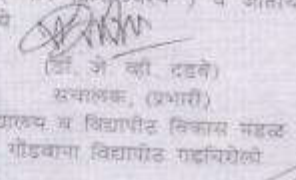 (डॉ. जे व्ही दडवे)
संचालक, (प्रभारी)
व विद्यापीठ विकास मंडळ
गोंडवाना विद्यापीठ गडचिरोली